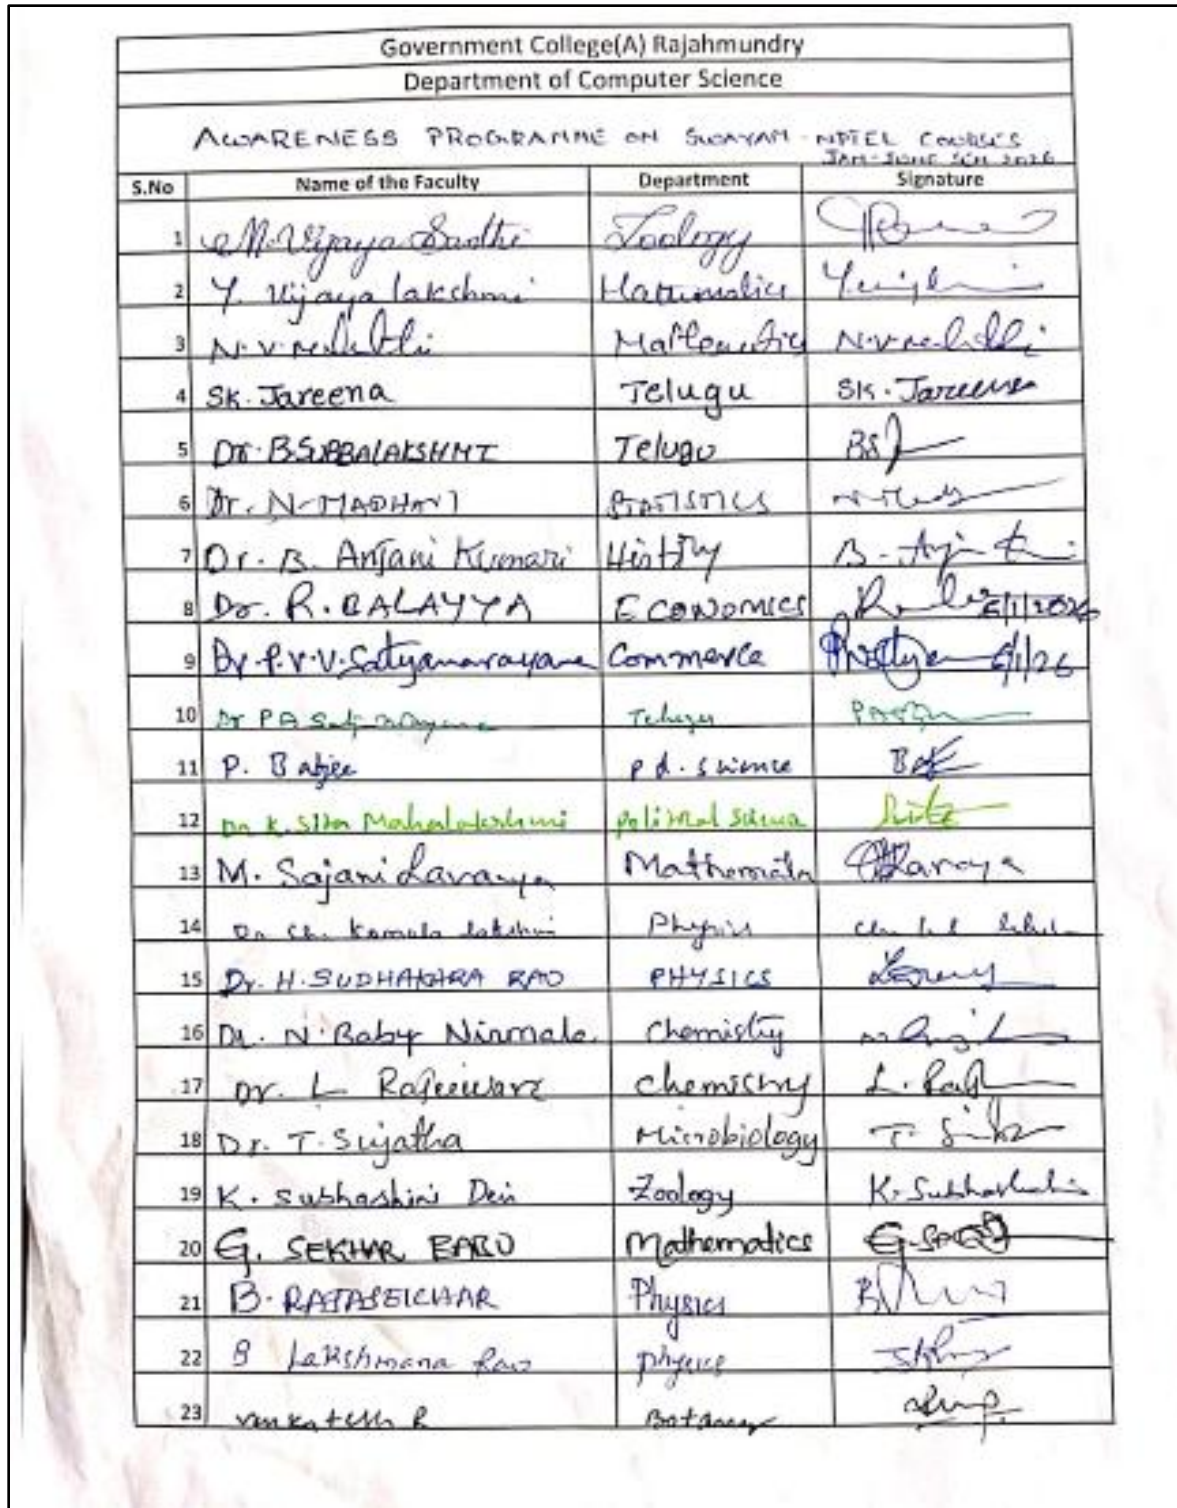 Government College(A) Rajahmundry
Department of Computer Science
AWARENESS PROGRAMME ON SWAYAM - NPTEL COURSES
JAN-JUNE SEM 2026
S.No Name of the Faculty Department Signature
1 M. Vijaya Zoology
2 Y. Vijaya lakshmi Mathematics
3 N.V. Mathematics N.V.
4 SK. Jareena Telugu SK. Jareena
5 Dr. B.SUBBALAKSHMI Telugu BS
6 Dr. N. MADHAVI STATISTICS
7 Dr. B. Anjani Kumari History B.
8 Dr. R. BALAYYA ECONOMICS 6/1/2026
9 Dr. P.V.V. Satyanarayana Commerce 6/1/26
10 Dr PA Telugu
11 P. Babjee pol. science
12 Dr K. Sita Mahalakshmi political science
13 M. Sajani Lavanya Mathematics Lavanya
14 Dr Ch. Kamala lakshmi Physics
15 Dr. H. SUDHAKARA RAO PHYSICS
16 Dr. N. Baby Nirmala Chemistry
17 Dr. L Rajeswari Chemistry L.
18 Dr. T. Sujatha Microbiology T.
19 K. Subhashini Devi Zoology K. Subhashini
20 G. SEKHAR BABU Mathematics G.
21 B. RAJASEKHAR Physics
22 Lakshmana Rao physics
23 Venkatesh B Botany